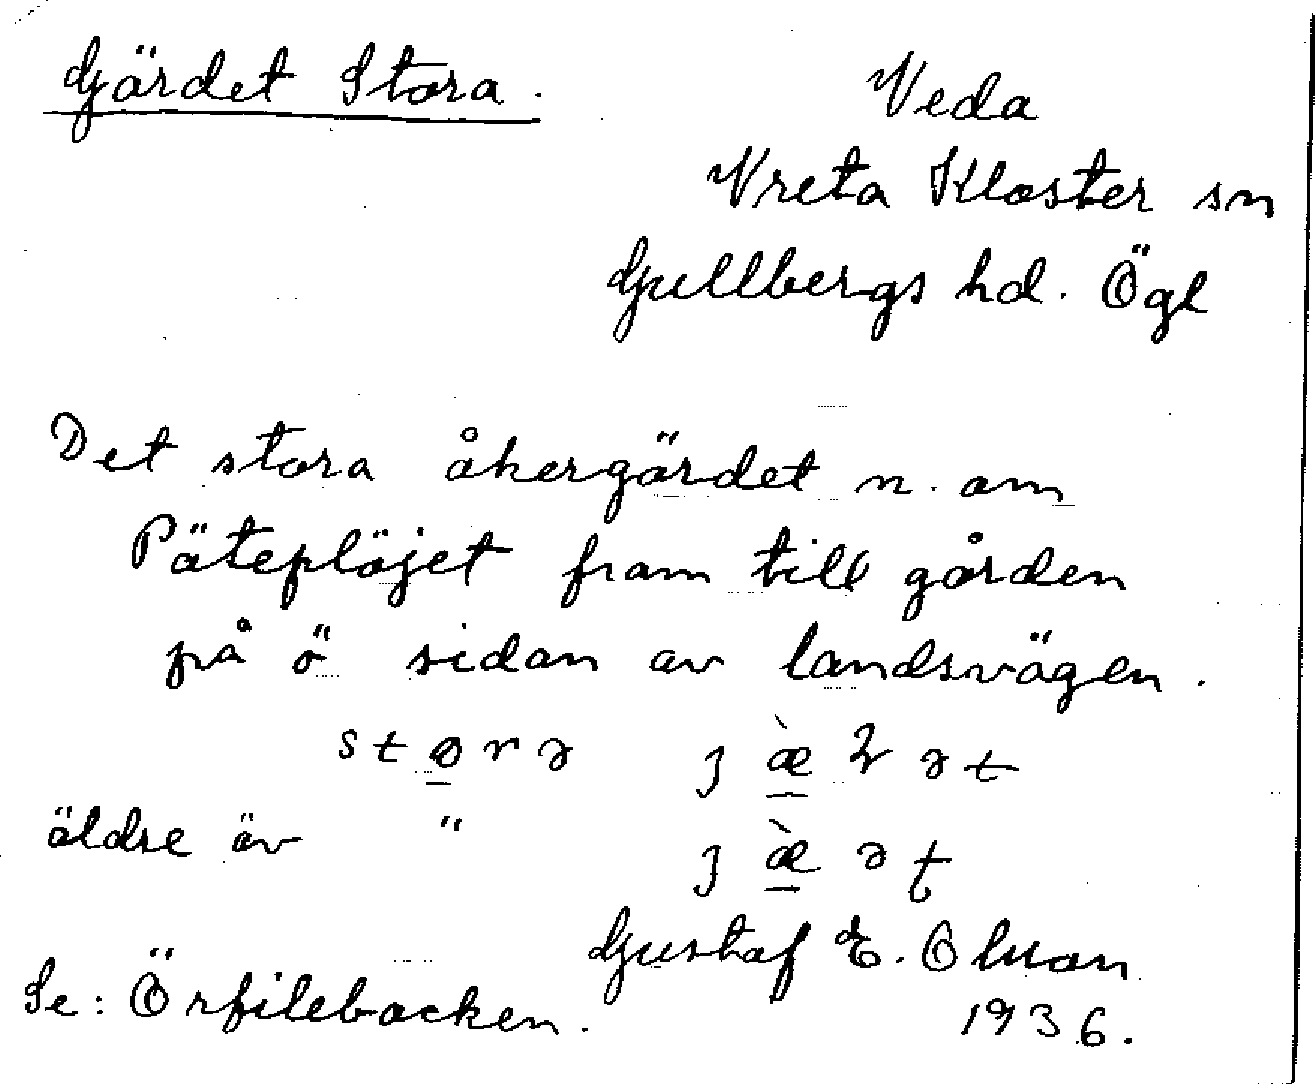 Gärdet Stora.
Veda
Vreta Kloster sn
Gullbergs hd. Ögl
Det stora åkergärdet n. om
Päteplöjet fram till gården
på ö sidan av landsvägen.
äldre äv "
Gustaf E. Olsson
Se: Örfilebacken.
1936.